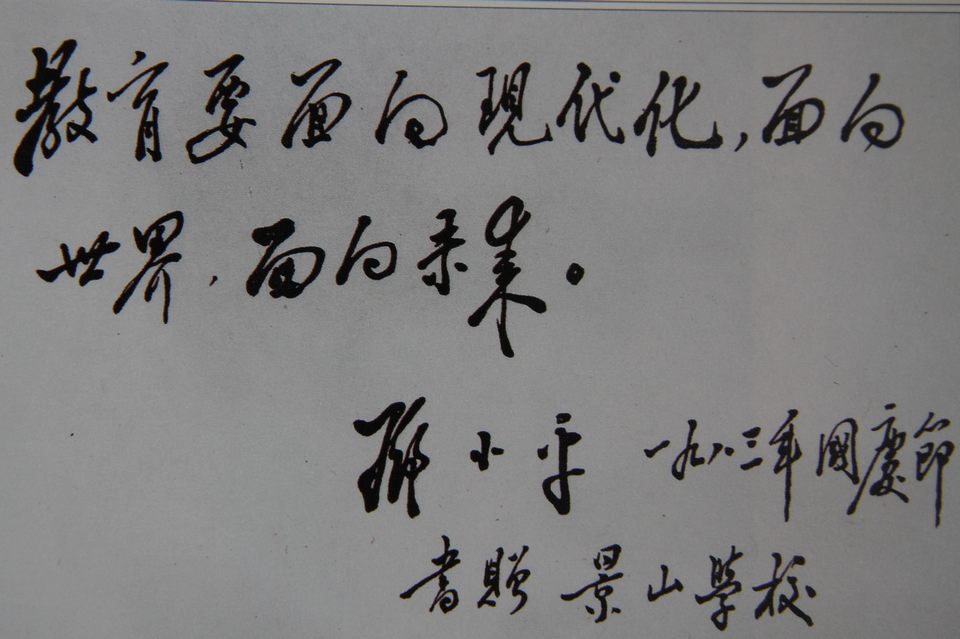 教育要面向現代化，面向
世界，面向未来。
鄧小平 一九八三年國慶節
書贈 景山學校